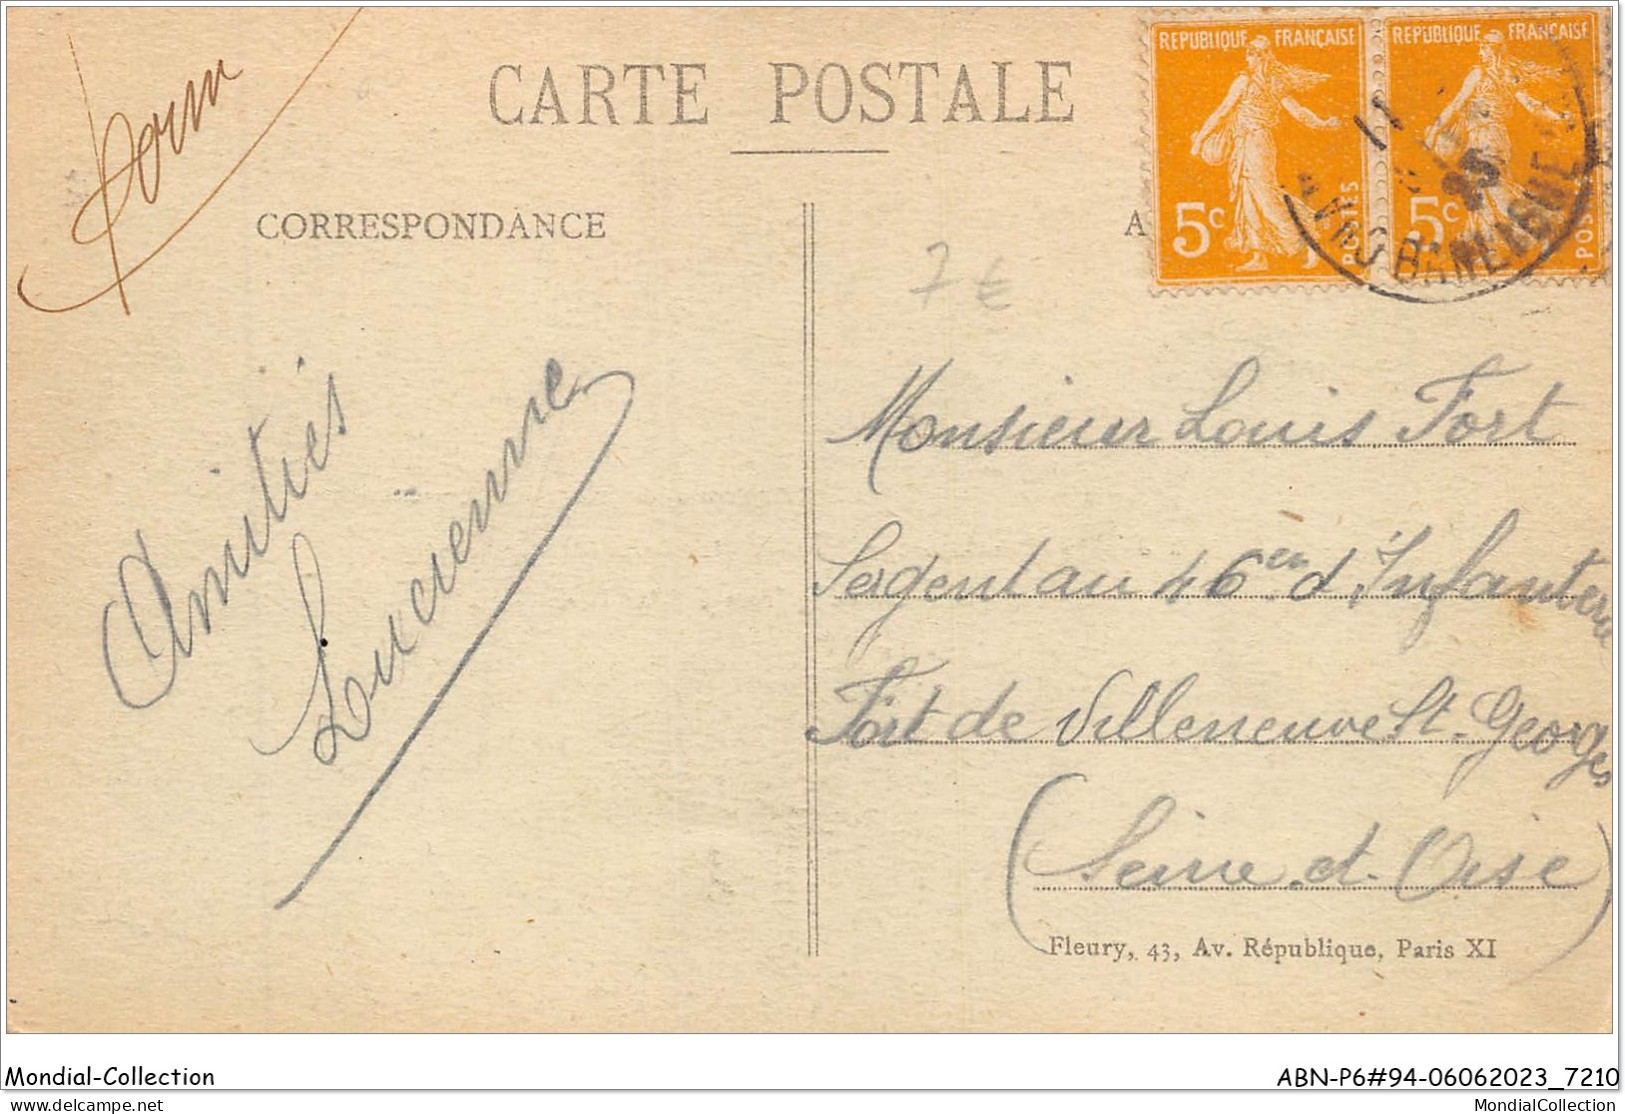 CARTE POSTALE
CORRESPONDANCE
REPUBLIQUE FRANÇAISE
5c
POSTES
REPUBLIQUE FRANÇAISE
5c
POSTES
25
7 €
Amitiés
Lucienne
Monsieur Louis Fort
Sergent au 46em d'Infanterie
Fort de Villeneuve St. Georges
(Seine et Oise)
Fleury, 43, Av. République, Paris XI
Mondial-Collection
ABN-P6#94-06062023_7210
delcampe.net
MondialCollection